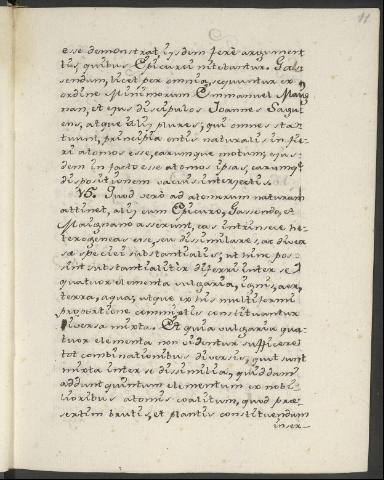 11
esse demonstrat, ijsdem fere argumen-
tis, quibus Epicurei nitebantur. Gas-
sendum, licet per omnia, sequuntur ex
ordine Minimorum Emmanuel Maig-
nan, et ejus discipulos Joannes Sagu-
ens, atque alij plures, qui omnes sta-
tuunt, principia entis naturalis in fie-
ri atomos esse, earumque motum, ejus-
dem in facto esse atomos ipsas, earumq
dispositionem vacuis interjectis.
15. Quod vero ad atomorum naturam
attinet, alij cum Epicuro, Gassendo, et
Maignano asserunt, eas intrinsece he-
terogeneas esse, seu dissimilares, ac diver-
sa speciei substantialis, ut nim pos-
sint substantialiter differri inter se
quatuor elementa vulgaria, ignis, aer,
terra, aqua, utque ex his multiformi
proportione commixtis constituantur
diversa mixta. Et quia vulgaria qua-
tuor elementa non videntur sufficere
tot combinationibus diversis, quot sunt
mixta inter se dissimilia, quiddam
addunt quintum elementum ex nobi-
lioribus atomis coalitum, quod prae-
sertim brutis, et plantis constituendum
inser-